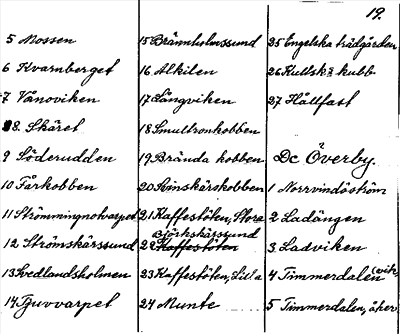 19.
5 Mossen
6 Kvarnberget
7 Vänoviken
8. Skäret
9 Söderudden
10 Fårkobben
11 Strömmingnotvarpet
12 Strömskärssund
13 Svedlandsholmen
14 Tjuvvarpet
15 Brännholmssund
16 Alkilen
17 Långviken
18 Smultronkobben
19 Brända kobben
20 Svinskärskobben
21 Kaffestöten, Stora
Björkskärssund
22 Kaffestöten
23 Kaffestöten, Lilla
24 Munte
25 Engelska trädgården
26 Kullsk: kubb
27 Hållfast
Dc Överby.
1 Norrvindsström
2 Ladängen
3 Ladviken
4 Timmerdalen (vik)
5 Timmerdalen, åker